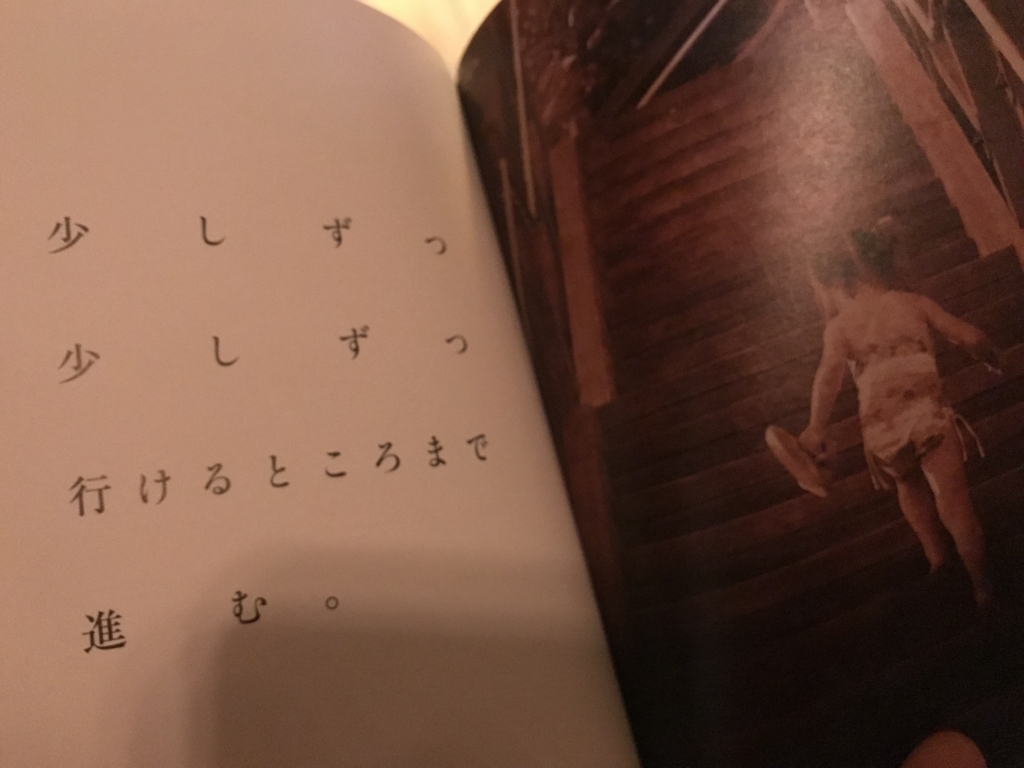 少しずつ
少しずつ
行けるところまで
進む。